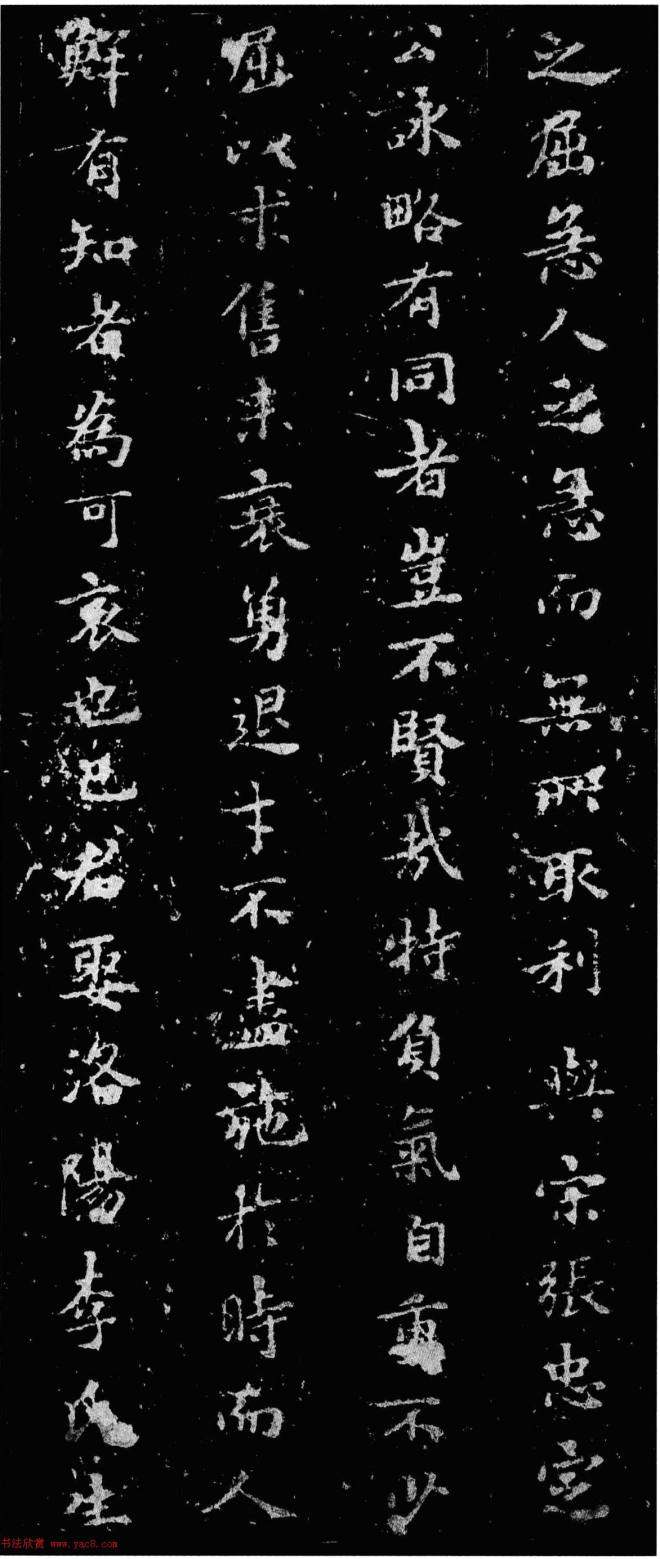 之屈急人之急而無所取利與宋張忠定
公詠略有同者豈不賢哉特負氣自重不少
屈以求售未衰勇退才不盡施於時而人
鮮有知者為可哀也已君娶洛陽李氏生
书法欣赏 www.yac8.com